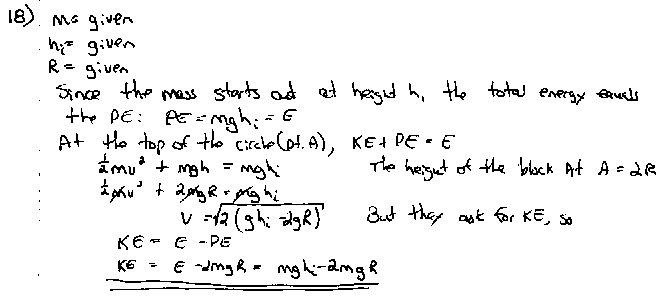 18) m= given
hᵢ= given
R = given
Since the mass starts out at height hᵢ the total energy equals
the PE: PE = mghᵢ = E
At the top of the circle (pt. A), KE + PE = E
½mv² + mgh = mghᵢ The height of the block At A = 2R
½mv² + 2mgR = mghᵢ
v = √2(ghᵢ - 2gR) But they ask for KE, so
KE = E - PE
KE = E - 2mgR = mghᵢ - 2mgR